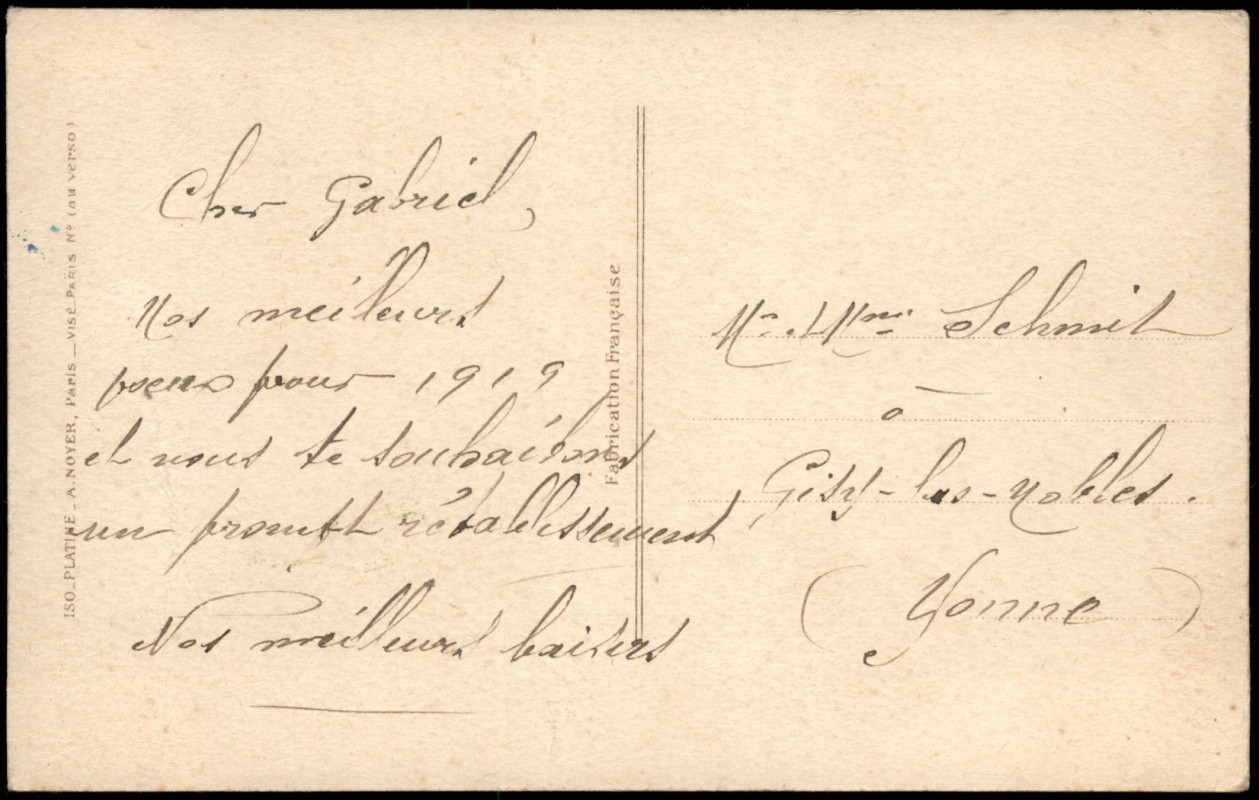 ISO_PLATINE _ A. NOYER, Paris _ VISÉ_PARIS Nº (au verso)
Cher Gabriel,
Nos meilleurs
voeux pour 1919
et nous te souhaitons
un prompt rétablissement
Nos meilleurs baisers
Fabrication Française
Mr et Mme Schmit
à
Gisy-les-Nobles.
(Yonne)